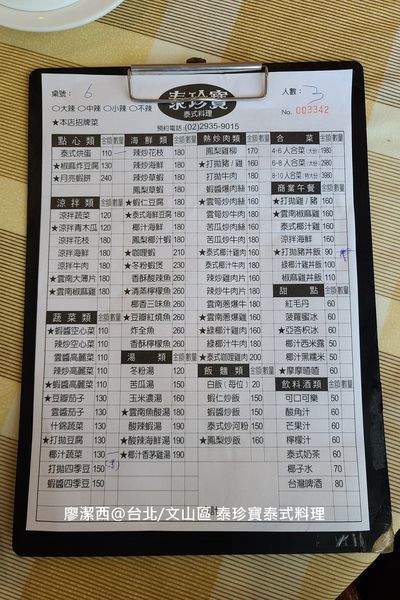 桌號： 6
泰珍寶
泰式料理
人數： 3
○大辣 ○中辣 ○小辣 ○不辣
★本店招牌菜
預約電話:(02)2935-9015
No. 003342
點心類 金額 數量
泰式烘蛋 110
★椒麻炸豆腐 130
★月亮蝦餅 240
涼拌類 金額 數量
涼拌蔬菜 120
★涼拌青木瓜 120
涼拌花枝 180
涼拌海鮮 180
涼拌牛肉 180
★雲南大薄片 180
★雲南椒麻雞 180
蔬菜類 金額 數量
★蝦醬空心菜 130
辣炒空心菜 130
雲醬高麗菜 130
辣炒高麗菜 130
★蝦醬高麗菜 130
★豆瓣茄子 130
雲醬茄子 130
什錦蔬菜 130
★打拋豆腐 130
椰汁蔬菜 150
打拋四季豆 150
蝦醬四季豆 150
海鮮類 金額 數量
辣炒花枝 180
辣炒海鮮 180
辣炒草蝦 180
鳳梨草蝦 180
★蝦仁豆腐 180
★泰式海鮮豆腐 180
椰汁海鮮 180
鳳梨椰汁蝦 180
★咖哩蝦 210
★冬粉蝦煲 230
香酥酸辣魚 260
★清蒸檸檬魚 260
椰香三味魚 260
★豆瓣紅燒魚 260
炸全魚 260
湯類 金額 數量
冬粉湯 120
苦瓜湯 150
玉米濃湯 160
★雲南魚酸湯 180
酸辣蝦湯 190
★酸辣海鮮湯 190
★椰汁香茅雞湯 190
熱炒肉類 金額 數量
鳳梨雞柳 160
★打拋豬/雞 160
打拋牛肉 180
蝦醬爆肉絲 160
★雲筍炒肉絲 160
雲筍炒牛肉 180
苦瓜炒肉絲 160
苦瓜炒牛肉 180
★泰式椰汁雞肉 160
泰式椰汁牛肉 180
辣炒雞肉片 160
辣炒牛肉片 180
雲南蔥爆雞 160
雲南蔥爆牛 180
★綠椰汁雞肉 160
綠椰汁牛肉 180
★泰式咖哩雞肉 200
飯麵類 金額 數量
白飯(每位) 20
蝦仁炒飯 160
蝦醬炒飯 160
泰式炒河粉 160
★鳳梨炒飯 160
合菜 金額 數量
4-6 人合菜
6-8 人合菜
8-10 人合菜
商業午餐 金額 數量
★打拋雞/豬 160
★雲南椒麻雞 160
泰式椰汁雞 160
涼拌海鮮 160
★打拋豬丼飯 90
綠椰汁雞丼飯 100
椒麻雞丼飯 110
甜點 金額 數量
紅毛丹 60
菠蘿蜜冰 60
★亞答枳冰 60
椰汁西米露 50
椰汁黑糯米 50
★摩摩喳喳 60
飲料酒類 金額 數量
可口可樂 50
酸角汁 60
芒果汁 60
檸檬汁 60
泰式奶茶 60
椰子水 70
台灣啤酒 80
計
廖潔西@台北/文山區 泰珍寶泰式料理